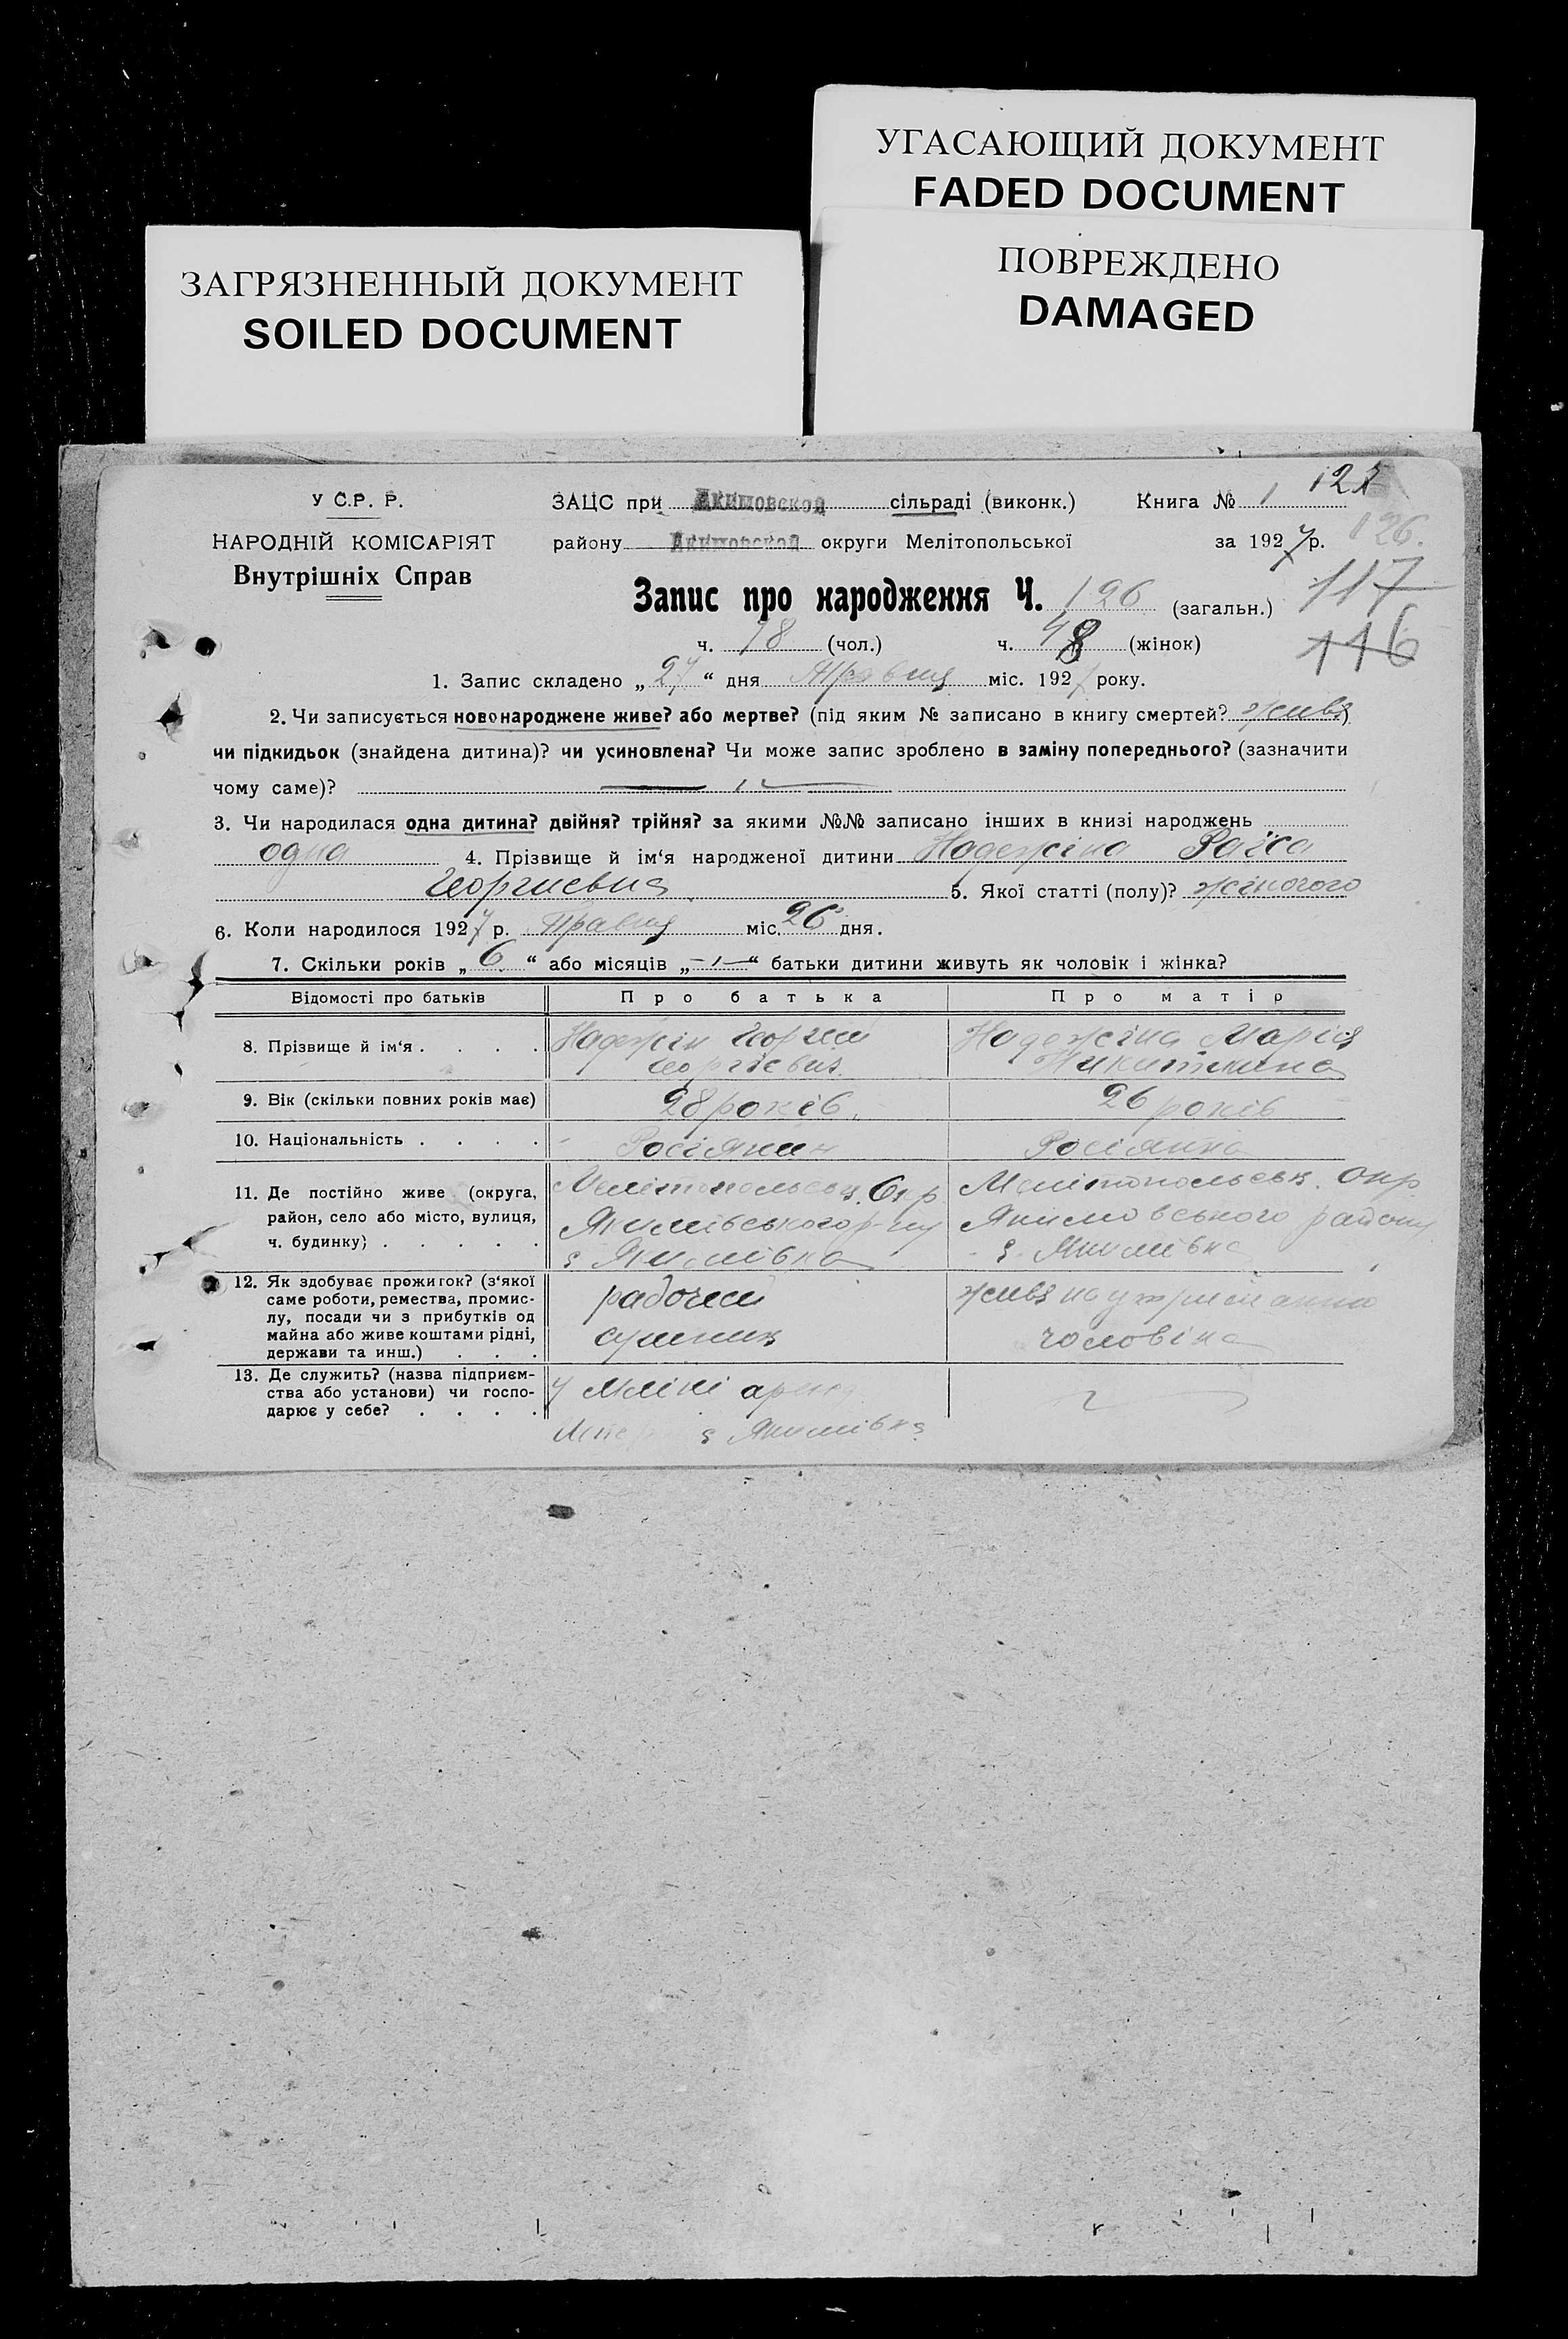 УГАСАЮЩИЙ ДОКУМЕНТ
FADED DOCUMENT
ЗАГРЯЗНЕННЫЙ ДОКУМЕНТ
SOILED DOCUMENT
ПОВРЕЖДЕНО
DAMAGED
У С.Р. Р.
НАРОДНІЙ КОМІСАРІЯТ
Внутрішніх Справ
ЗАЦС при Акимовской сільраді (виконк.)
Книга № 1
району Акимовской округи Мелітопольської
за 1927 р.
126.
117
116
Запис про народження Ч. 126 (загальн.)
ч. 78 (чол.) ч. 48 (жінок)
1. Запис складено „ 27 “ дня Травня міс. 1927 року.
2. Чи записується новонароджене живе? або мертве? (під яким № записано в книгу смертей? живе)
чи підкидьок (знайдена дитина)? чи усиновлена? Чи може запис зроблено в заміну попереднього? (зазначити
чому саме)?
3. Чи народилася одна дитина? двійня? трійня? за якими №№ записано інших в книзі народжень
одна 4. Прізвище й ім‘я народженої дитини Надежіна Раїса
Георгиевна 5. Якої статті (полу)? жіночого
6. Коли народилося 1927 р. Травня міс. 26 дня.
7. Скільки років „ 6 “ або місяців „ — “ батьки дитини живуть як чоловік і жінка?
Відомості про батьків Про батька Про матір
8. Прізвище й ім‘я . . . . Надежін Георгий Надежіна Марія
Георгіевич Никитична
9. Вік (скільки повних років має) 28 років. 26 років
10. Національність . . . . Росіянин Росіянка
11. Де постійно живе (округа, Мелітопольськ. Окр Мелітопольськ. Окр
район, село або місто, вулиця, Якимівського р-ну Якимовського району
ч. будинку) . . . . . с Якимівка с. Якимівка
12. Як здобуває прожиток? (з‘якої
саме роботи, ремества, промис- рабочий живе на утриманню
лу, посади чи з прибутків од
майна або живе коштами рідні, чоловіка
держави та инш.) . . .
13. Де служить? (назва підприєм-
ства або установи) чи госпо- У млині
дарює у себе? . . . .
с Якимівка